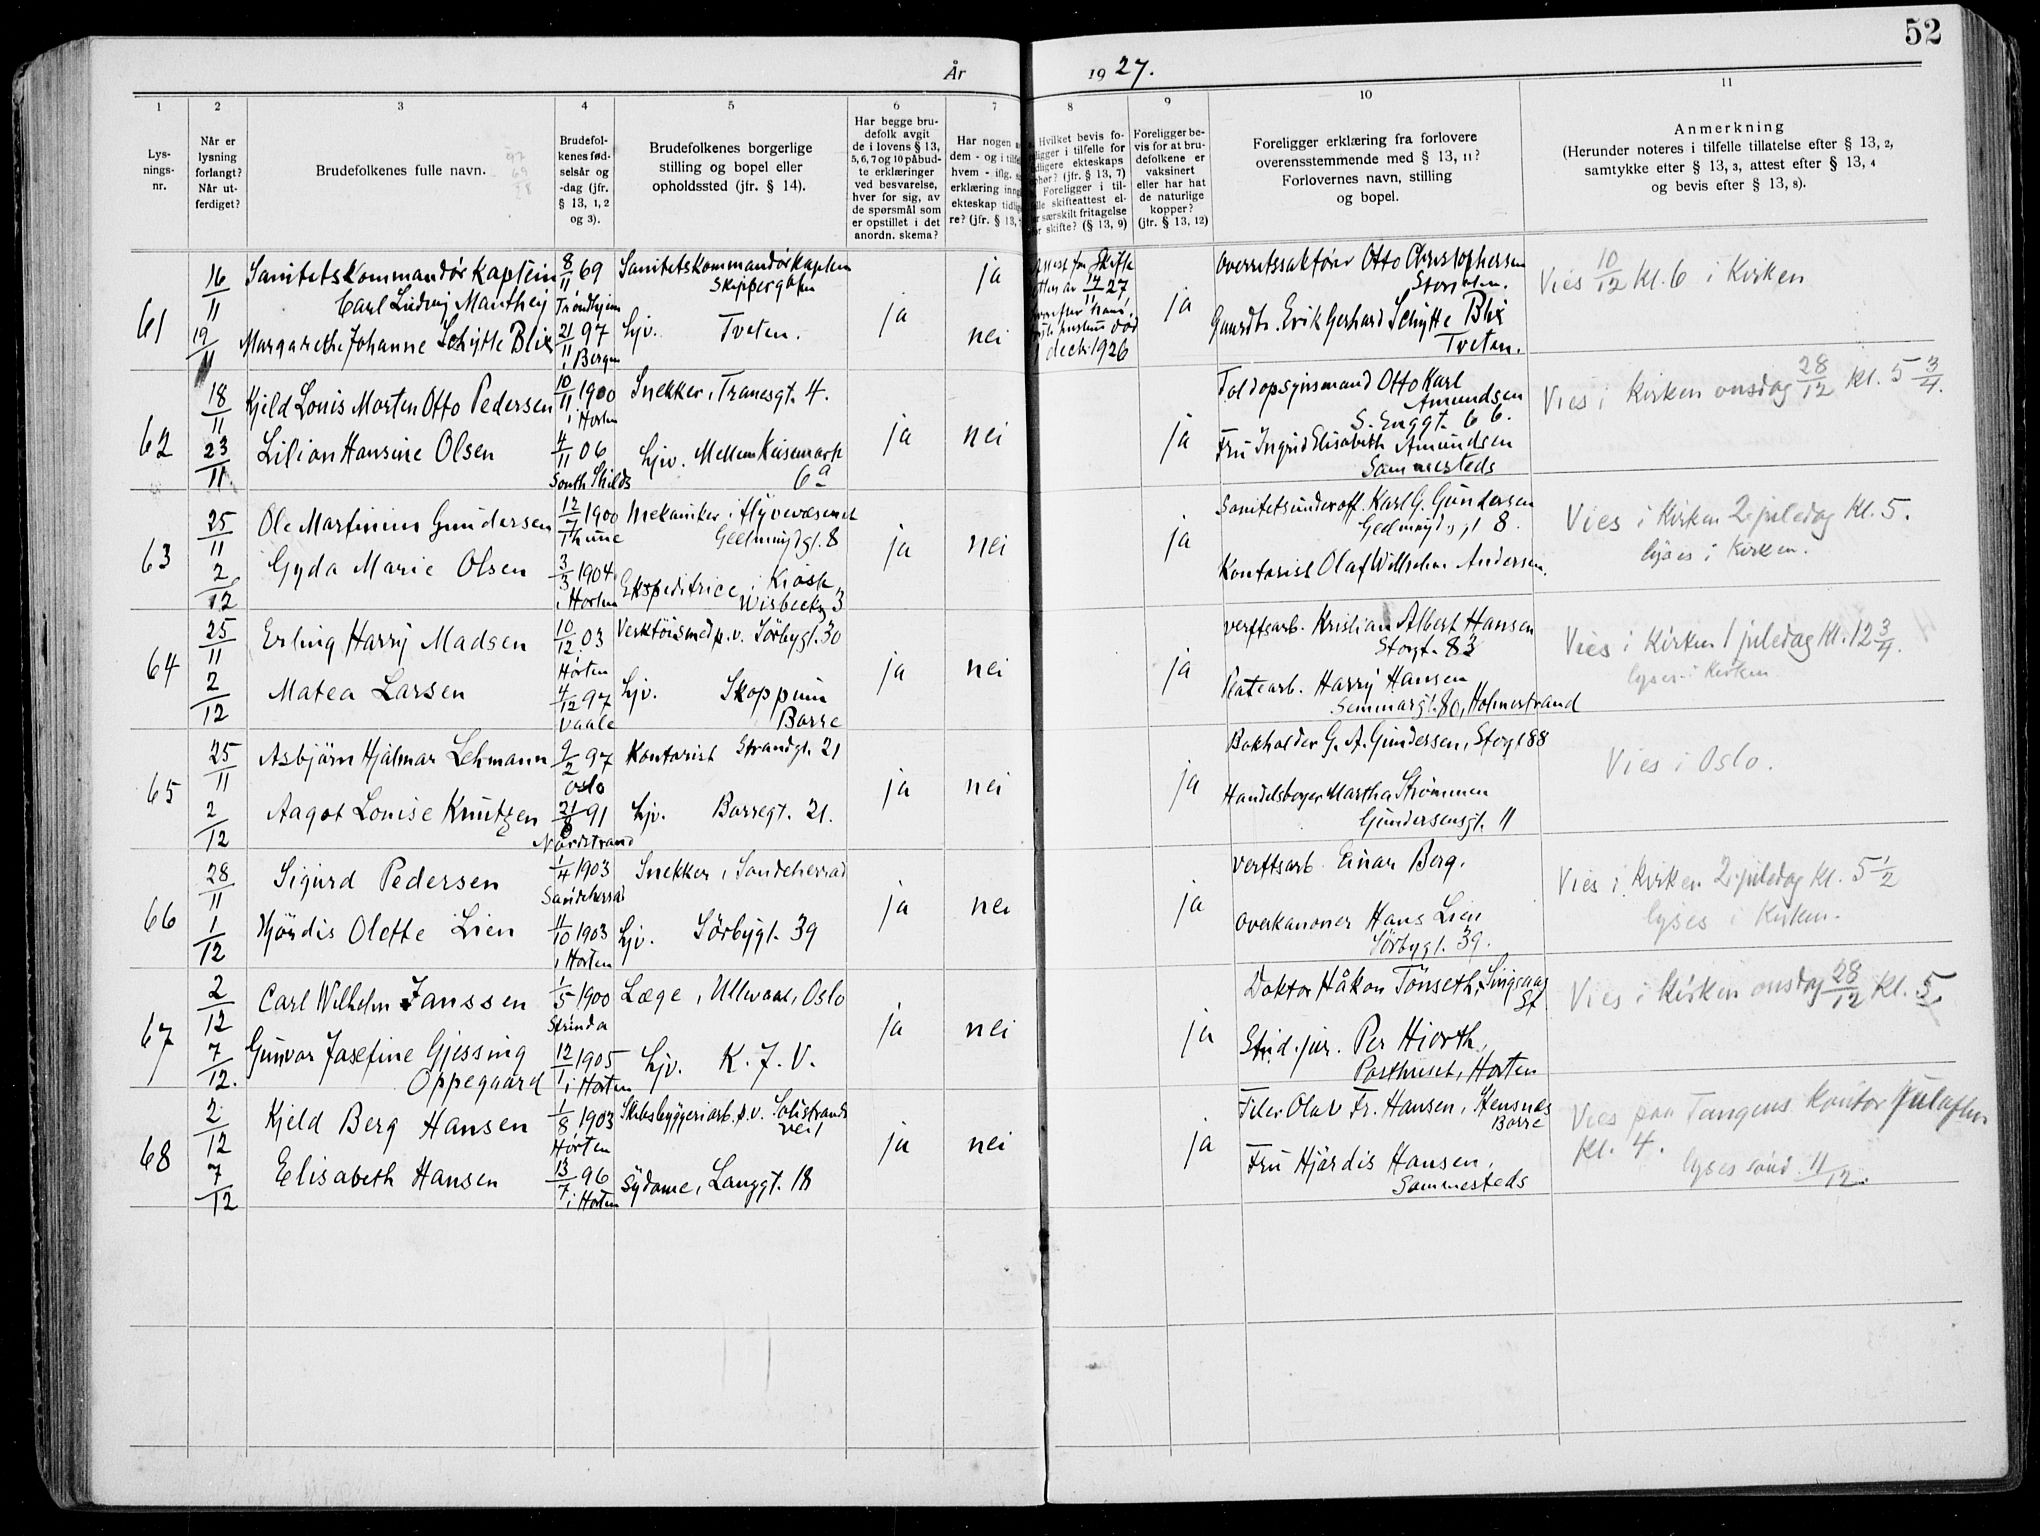 52
År 1927.
1 2 3 4 5 6 7 8 9 10 11
Lys-
nings-
nr.
Når er
lysning
forlangt?
Når ut-
ferdiget?
Brudefolkenes fulle navn.
Brudefol-
kenes fød-
selsår og
-dag (jfr.
§ 13, 1, 2
og 3).
Brudefolkenes borgerlige
stilling og bopel eller
opholdssted (jfr. § 14).
Har begge bru-
defolk avgit
de i lovens § 13,
5, 6, 7 og 10 påbud-
te erklæringer
ved besvarelse,
hver for sig, av
de spørsmål som
er opstillet i det
anordn. skema?
Har nogen a
dem - og i tilfe
hvem - iflg.
erklæring inng
ekteskap tidlig
re? (jfr. § 13,
Hvilket bevis fo-
ligger i tilfelle for
dligere ekteskaps
phør? (jfr. § 13, 7)
Foreligger i til-
lle skifteattest el-
r særskilt fritagelse
or skifte? (§ 13, 9)
Foreligger be-
vis for at bru-
defolkene er
vaksinert
eller har hat
de naturlige
kopper?
(jfr. § 13, 12)
Foreligger erklæring fra forlovere
overensstemmende med § 13, 11?
Forlovernes navn, stilling
og bopel.
Anmerkning
(Herunder noteres i tilfelle tillatelse efter § 13, 2,
samtykke efter § 13, 3, attest efter § 13, 4
og bevis efter § 13, 8).
61
16/11
19/11
Sanitetskommandørkaptein
Carl Ludvig Manthey
Margarethe Johanne Schytte Blix
8/11 69
Trondhjem
21/11 97
i Bergen
Sanitetskommandørkaptein
Skippergaten
hjv. Tveten.
ja
ja
nei
17/11 27
død
dec. 1926
ja
Overretssakfører Otto Christophersen
Storgaten.
Gaardbr. Erik Gerhard Schytte Blix
Tveten.
Vies 10/12 kl. 6 i Kirken
62
18/11
23/11
Kjeld Louis Morten Otto Pedersen
Lilian Hansine Olsen
10/11 1900
i Horten
4/11 06
South Shilds
Snekker, Tranesgt. 4.
hjv. Mellem Keisemark
6a
ja
nei
ja
Toldopsynsmand Otto Karl
Amundsen
S. Enggt. 6 b.
Fru Ingrid Elisabeth Amundsen
Sammesteds
Vies i Kirken onsdag 28/12 kl. 5 3/4.
63
25/11
2/12
Ole Martinius Gundersen
Gyda Marie Olsen
12/7 1900
Thune
3/3 1904
i Horten
Mekaniker i flyvevæsenet
Gedmyrgt. 8
Ekspeditrice i Kiosk
Wisbecks 3
ja
nei
ja
Sanitetsunderoff. Karl G. Gundersen
Gedmyrgt 8.
Kontorist Olaf Wilhelm Andersen.
Vies i Kirken 2. juledag kl. 5.
lyses i Kirken.
64
25/11
2/12
Erling Harry Madsen
Matea Larsen
10/12 03
Horten
4/12 97
Vaale
Verktöismed p.v. Sörbygt. 30
hjv. Skoppum
Borre
ja
nei
ja
Verftsarb. Kristian Albert Hansen
Storgt. 83
Platearb. Harry Hansen
80, Holmestrand
Vies i Kirken 1 juledag kl. 12 3/4.
lyses i Kirken
65
25/11
2/12
Asbjörn Hjalmar Lehmann
Aagot Louise Knutzen
9/2 97
Oslo
21/8 91
Nordstrand
Kontorist Strandgt. 21
hjv. Borregt. 21.
ja
nei
ja
Bokholder G. A. Gundersen, Storgt 88
Handelsborger Martha Strömmen
Gundersensgt. 11
Vies i Oslo.
66
28/11
1/12
Sigurd Pedersen
Hjördis Olette Lien
1/4 1903
Sandeherred
11/10 1903
i Horten
Snekker, Sandeherred
hjv. Sörbygt. 39
ja
nei
ja
Verftsarb. Einar Berg.
Overkanoner Hans Lien
Sörbygt. 39.
Vies i Kirken 2. juledag kl. 5 1/2
lyses i Kirken.
67
2/12
7/12.
Carl Wilhelm Janssen
Gunvor Josefine Gjessing
Oppegaard
1/5 1900
Strinda
12/1 1905
i Horten
Læge, Ullevaal, Oslo
hjv. K. J. V.
ja
nei
ja
Doktor Håkon Tönseth, Singsaas
St.
Stud. jur. Per Hiorth,
Posthuset, Horten
Vies i Kirken onsdag 28/12 kl. 5.
68
2/12
7/12
Kjeld Berg Hansen
Elisabeth Hansen
1/8 1903
Horten
13/7 96
i Horten
Skibsbyggeriarb. p.v. Solistrands
vei 1
Sydame, Langgt. 18
ja
nei
ja
Filer Olav Fr. Hansen, Stensnes
Borre
Fru Hjördis Hansen,
Sammesteds
Vies paa Tangens Kontor julaften
kl. 4.
lyses sönd. 11/12.